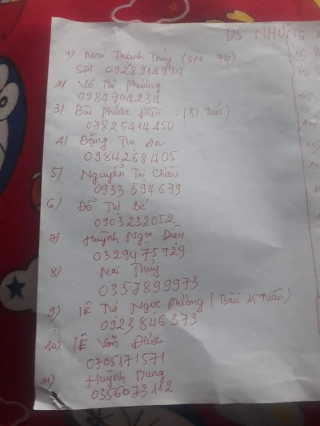 VS NHỮNG
1) Mai Thành Thủy (SN 74)
SĐT 0928914994
2) Võ Thị Phường
0984704234
3) Bùi Phước Điền : (81 tuổi)
09825414450
4) Đặng Thị An
0984268405
5) Nguyễn Thị Chiêu
0933 594 679
6) Đỗ Thị Bé
0903232052
7) Huỳnh Ngọc Diệu
0329475929
8) Mai Thủy
0357899973
9) Lê Thị Ngọc Phường (Bầu 15 tuần)
0923 846 373
10) Lê Văn Đức
0705171571
11) Huỳnh Dung
0356073112